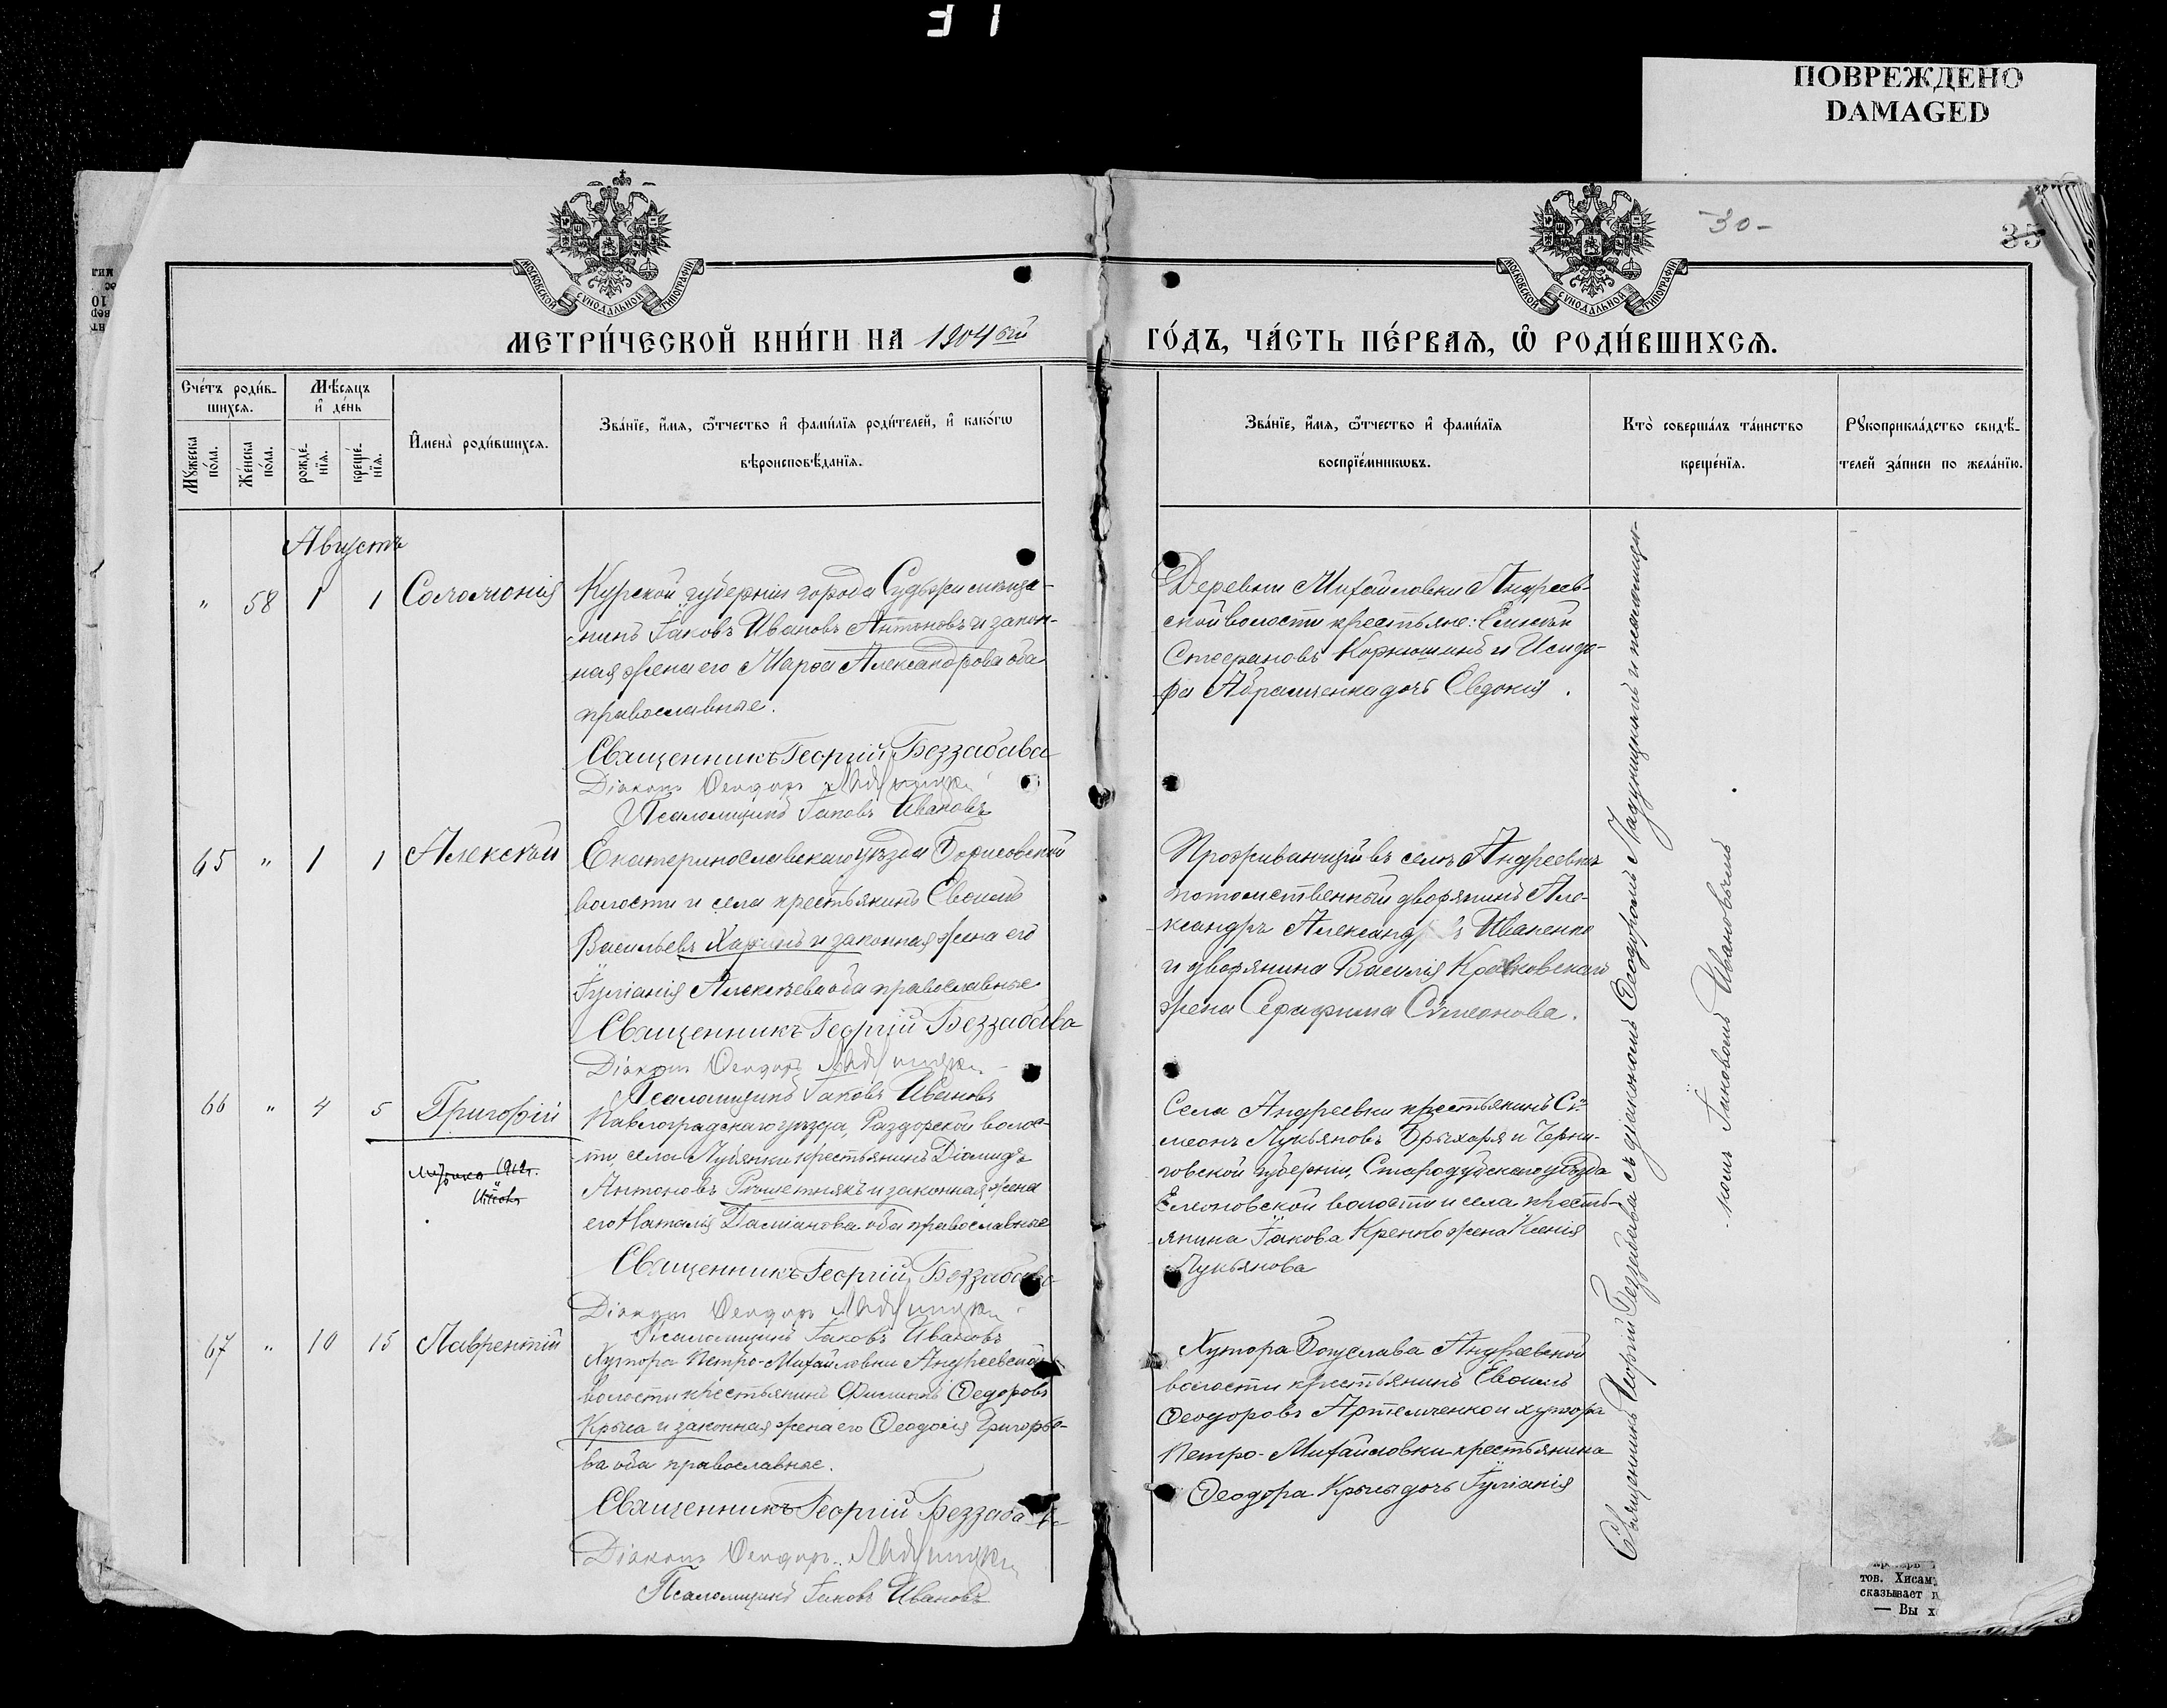 ПОВРЕЖДЕНО
DAMAGED
-30-
35
МОСКОВСКОЙ СѴНОДАЛЬНОЙ ТИПОГРАФІИ
МОСКОВСКОЙ СѴНОДАЛЬНОЙ ТИПОГРАФІИ
МЕТРИ́ЧЕСКОЙ КНИ́ГИ НА 1904ый
ГО́ДЪ, ЧА́СТЬ ПЕ́РВАѦ, Ѽ РОДИ́ВШИХСѦ.
Сче́тъ роди́в-
шихсѧ.
Мꙋ́жеска
по́ла.
Же́нска
по́ла.
Мѣ́сѧцъ
и҆ де́нь
рожде́-
нїѧ.
креще́-
нїѧ.
И҆мена̀ роди́вшихсѧ.
Зва́нїе, и҆́мѧ, ѻ҆́тчество и҆ фами́лїѧ роди́телей, и҆ како́гѡ
вѣроисповѣ́данїѧ.
Зва́нїе, и҆́мѧ, ѻ҆́тчество и҆ фами́лїѧ
воспрїе́мникѡвъ.
Кто̀ соверша́лъ та́инство
креще́нїѧ.
Рꙋкоприкла́дство свидѣ́-
телей за́писи по жела́нїю.
Августъ
" 58 1 1 Соломонія
Курской губерніи города Суджи мѣща-
нинъ Іаковъ Ивановъ Антоновъ и закон-
ная жена его Марѳа Александрова оба
православные.
Священникъ Георгій Беззабава
Діаконъ Ѳеодоръ
Псаломщикъ Іаковъ Ивановъ
Деревни Михайловки Андреев-
ской волости крестьяне: Елисей
Стефановъ Корнюшинъ и Исидо-
ра Абрамченка дочь Евдокія.
65 " 1 1 Алексѣй
Екатеринославскаго уѣзда Борисовской
волости и села крестьянинъ Евѳимъ
Васильевъ Харинъ и законная жена его
Іуліанія Алексѣева оба православные
Священникъ Георгій Беззабава
Діаконъ Ѳеодоръ
Псаломщикъ Іаковъ Ивановъ
Проживающій въ селѣ Андреевкѣ
потомственный дворянинъ Але-
ксандръ Александ въ Иваненко
и дворянина Василія Краковскаго
жена Серафима Симеонова.
66 " 4 5 Григорій
1912г.
Павлоградскаго уѣзда, Раздорской волос-
ти, села Лубянки крестьянинъ Діомидъ
Антоновъ Решетнякъ и законная жена
его Наталія Даміанова оба православные
Священникъ Георгій Беззабава
Діаконъ Ѳеодоръ
Псаломщикъ Іаковъ Ивановъ
Села Андреевки крестьянинъ Си-
меонъ Лукьяновъ Брыхаря и Черни-
говской губерніи, Стародубскаго уѣзда
волости и села кресть-
янина Іакова Кренко жена Ксенія
Лукьянова
67 " 10 15 Лаврентій
Хутора Петро-Михайловки Андреевской
волости крестьянинъ Филиппъ Ѳедоровъ
Крыса и законная жена его Ѳеодосія Григорье-
ва оба православные.
Священникъ Георгій Беззабава
Діаконъ Ѳеодоръ
Псаломщикъ Іаковъ Ивановъ
Хутора Богуслава Андреевской
волости крестьянинъ Евѳимъ
Ѳеодоровъ Артемченко и хутора
Петро-Михайловки крестьянина
Ѳеодора Крысы дочь Іуліанія
Священникъ Георгій Беззабава съ діакономъ Ѳеодоромъ и псаломщи-
комъ Іаковомъ Ивановымъ
тов. Хисам
сказывает
— Вы х